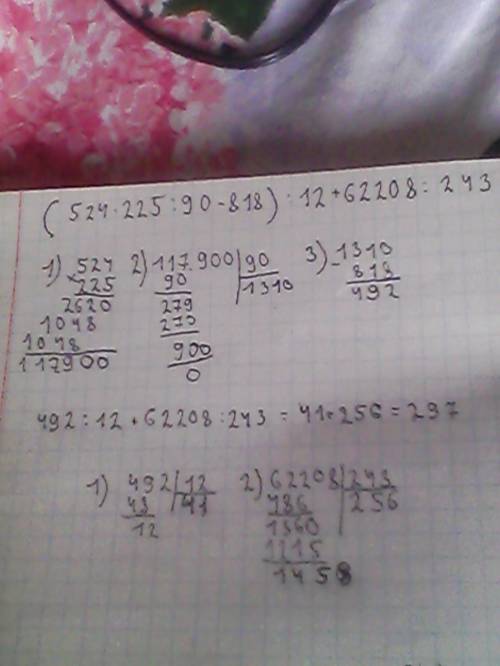 (524·225:90-818):12+62208:243
1) 524 2) 117.900 90 3) -1310
×225 90 1310 818
2620 279 492
1048 270
1048 900
117900 0
492:12+62208:243=41+256=297
1) 492 12 2) 62208 243
48 41 486 256
12 1360
1215
1458